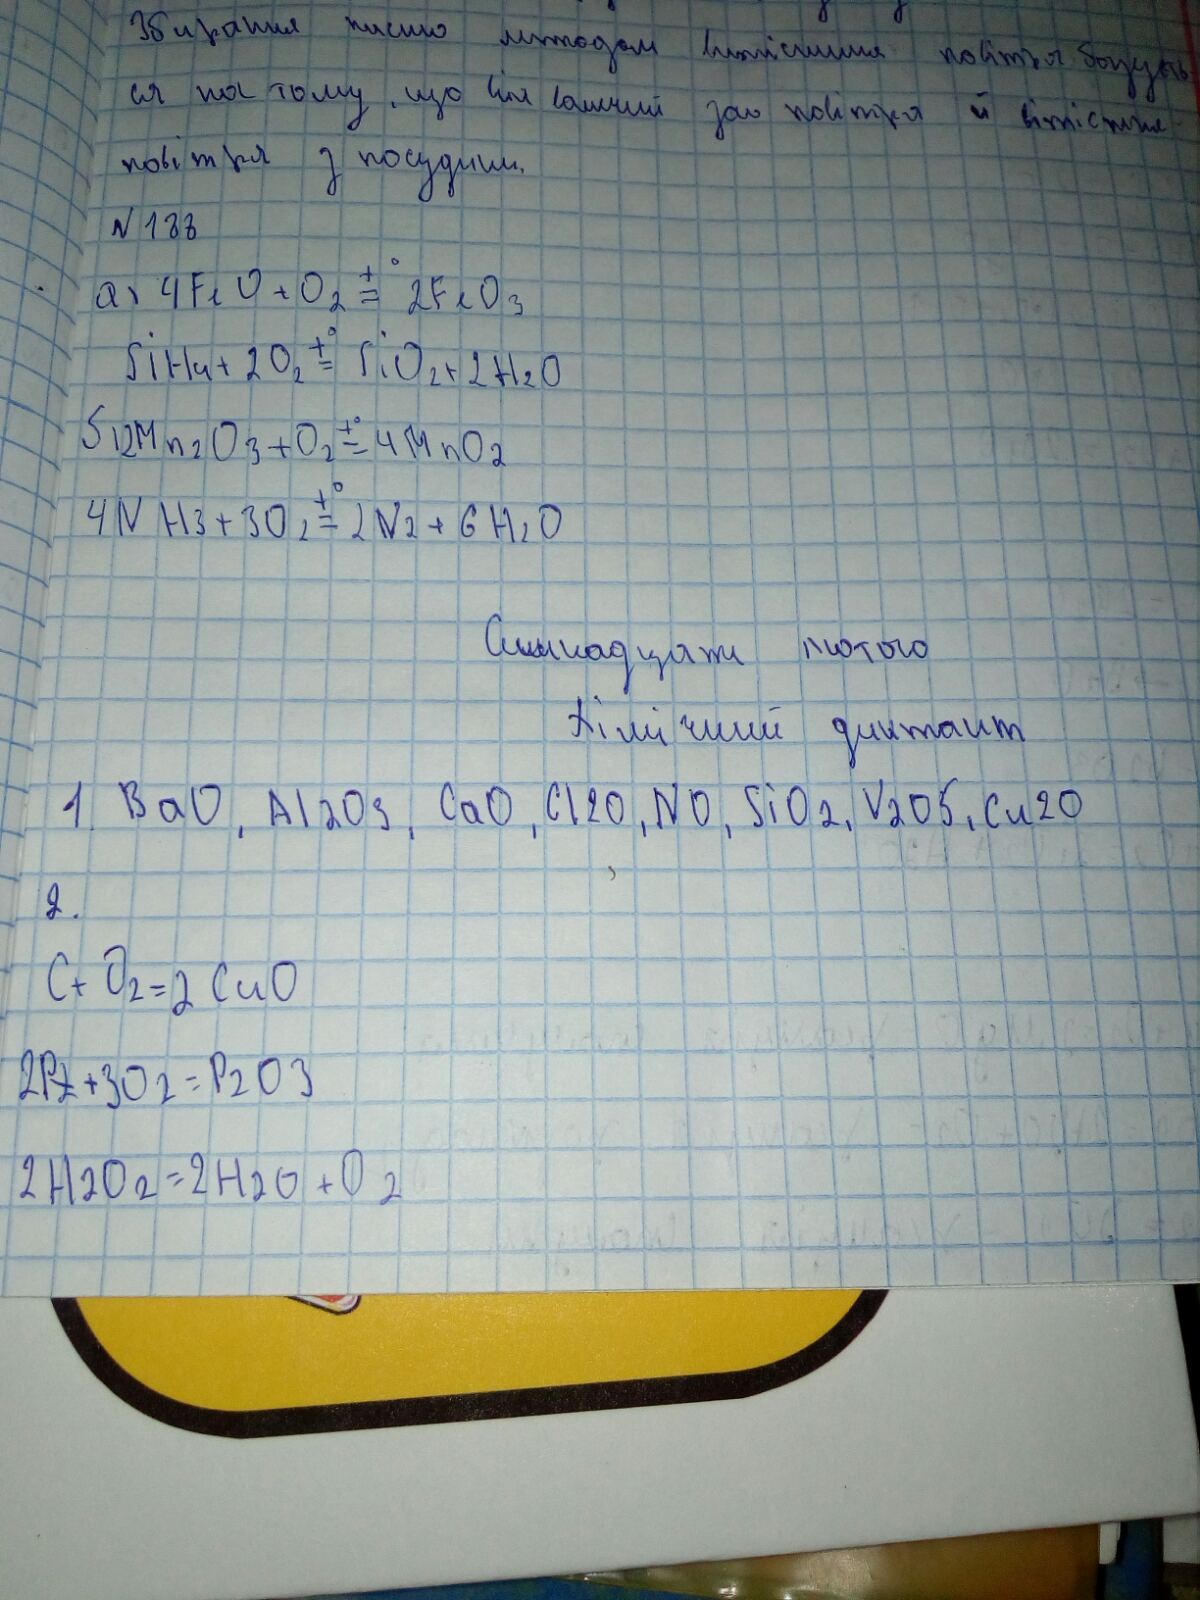 Збирання кисню методом витіснення повітря базуєть
ся на тому, що він важчий за повітря й витісняє
повітря з посудини.
N 188
а) 4FeO + O2 =t° 2FeO3
SiH4 + 2O2 =t° SiO2 + 2H2O
2Mn2O3 + O2 =t° 4MnO2
4NH3 + 3O2 =t° 2N2 + 6H2O
Сімнадцяте лютого
Хімічний диктант
1. BaO, Al2O3, CaO, Cl2O, NO, SiO2, V2O5, Cu2O
2.
C + O2 = 2 CuO
2P2 + 3O2 = P2O3
2H2O2 = 2H2O + O2